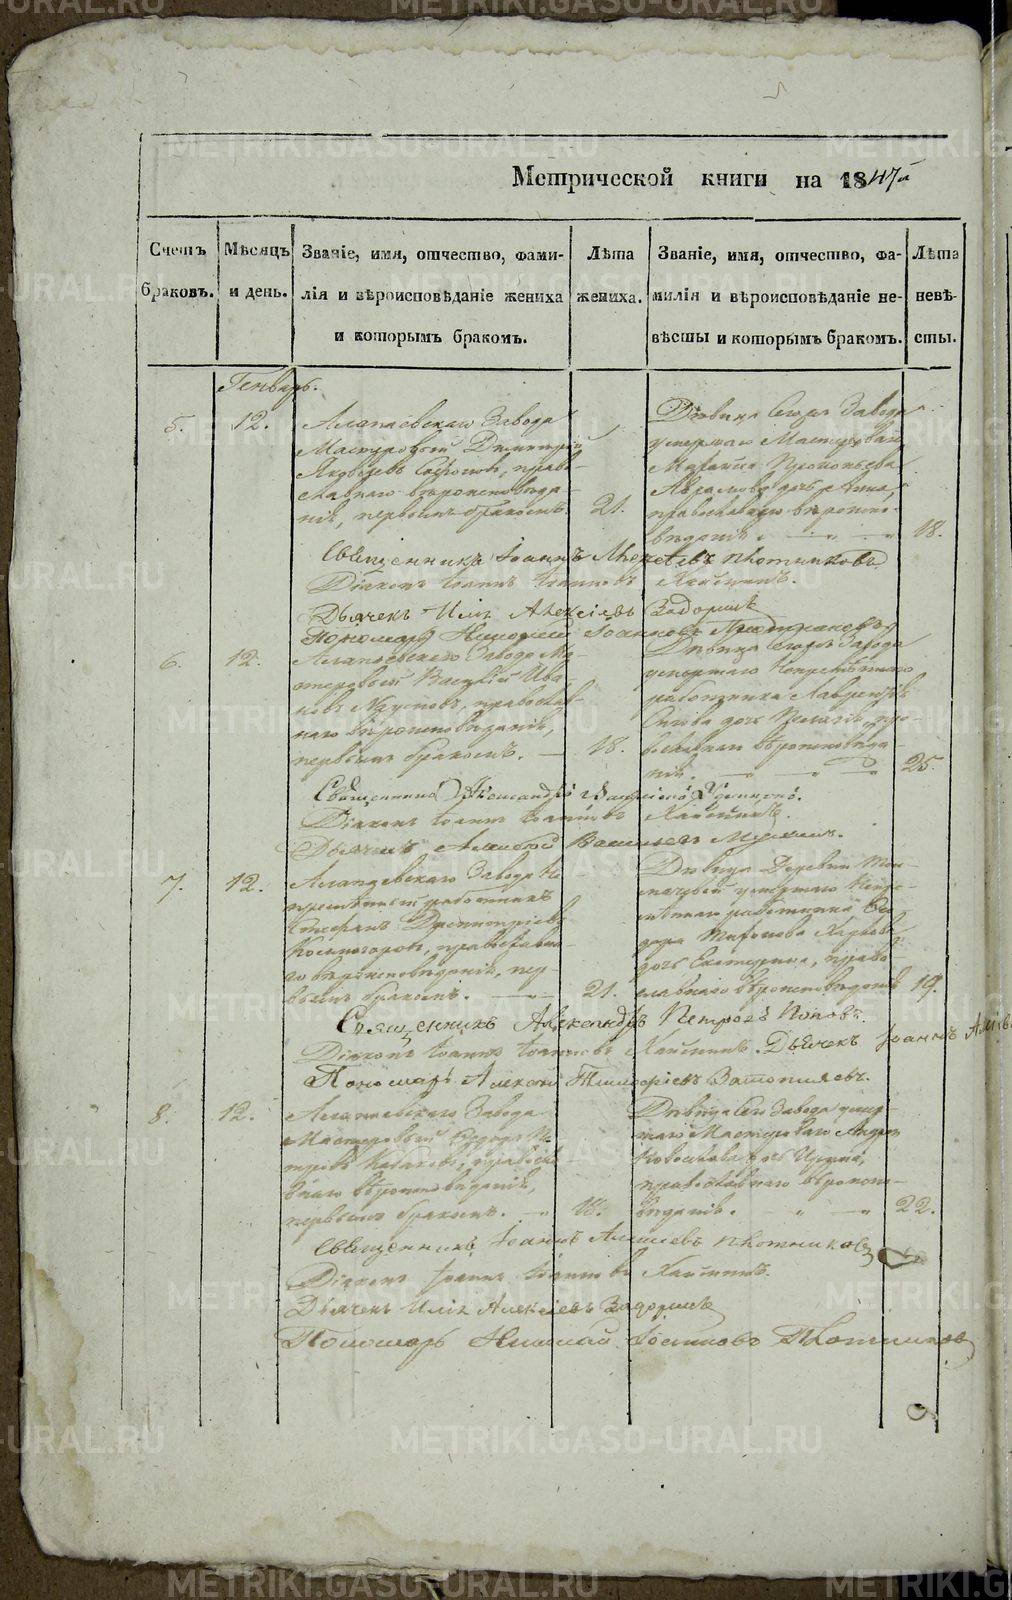 Метрической книги на 1847й
Счетъ браковъ.
Мѣсяцъ и день.
Званіе, имя, отчество, фами-
лія и вѣроисповѣданіе жениха
и которымъ бракомъ.
Лѣта
жениха.
Званіе, имя, отчество, фа-
милія и вѣроисповѣданіе не-
вѣсты и которымъ бракомъ.
Лѣта
невѣ-
сты.
Генварь.
5. 12.
Алапаевскаго Завода
Мастеровый Димитрій
Яковлевъ, право-
славнаго вѣроисповѣда-
нія, первымъ бракомъ. 21.
Дѣвица Сегожъ Завода
умершаго Мастероваго
Прокопьева
дочь Анна,
православнаго вѣроиспо-
вѣданія 18.
Священникъ Іоаннъ Алексѣевъ Плотниковъ
Діаконъ Іоаннъ Іоанновъ
Дьячекъ Илія Алексіевъ Задоринъ
Пономарь Николай Іоанновъ Плотниковъ
6. 12.
Алапаевскаго Завода Ма-
стеровый Василій Ива-
новъ, православ-
наго вѣроисповѣданія,
первымъ бракомъ. 18.
Дѣвица Сегожъ Завода
умершаго Непремѣннаго
работника Лаврентія
дочь Пелагія, пра-
вославнаго вѣроисповѣда-
нія. 25.
Священникъ Александръ
Діаконъ Іоаннъ Іоанновъ
Дьячекъ Алексѣй Васильевъ
7. 12.
Алапаевскаго Завода Не-
премѣнный работникъ
Стефанъ Димитріевъ
Косыгоровъ, православна-
го вѣроисповѣданія, пер-
вымъ бракомъ. 21.
Дѣвица Деревни Тол-
мачевой умершаго Непре-
мѣннаго работника Ѳе-
дора
дочь Екатерина, право-
славнаго вѣроисповѣданія 19.
Священникъ Александръ Петровъ Поповъ.
Діаконъ Іоаннъ Іоанновъ Дьячекъ Іоаннъ
Пономарь Алексѣй Тимофіевъ Затопляевъ.
8. 12.
Алапаевскаго Завода
Мастеровый Пе-
тровъ Казаковъ, правосла-
внаго вѣроисповѣданія,
первымъ бракомъ. 18.
Дѣвица Сего Завода умер-
шаго Мастероваго Андрея
дочь Ирина,
православнаго вѣроиспо-
вѣданія. 22.
Священникъ Іоаннъ Алексіевъ Плотниковъ
Діаконъ Іоаннъ Іоанновъ
Дьячекъ Илія Алексіевъ Задоринъ
Пономарь Николай Іоанновъ Плотниковъ
METRIKI.GASO-URAL.RU